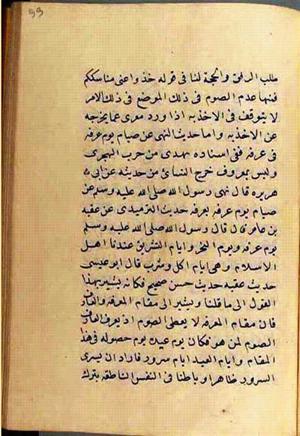 طلب الرفق والحجة لنا في قوله خذوا عني مناسككم
فمنها عدم الصوم في ذلك الموضع في ذلك الامر
لا يتوقف في الاخذ به اذا ورد معرى عما يخرجه
عن الاخذ به واما حديث النهى عن صيام يوم عرفة
في عرفة ففي اسناده مهدى بن حرب الهجرى
وليس بمعروف خرج النسائ من حديثه عن ابى
هريرة قال نهى رسول الله صلى الله عليه وسلم عن
صيام يوم عرفة بعرفة حديث الترميدى عن عقبة
بن عامر قال قال رسول الله صلى الله عليه وسلم
يوم عرفة ويوم النحر وايام التشريق عندنا اهل
الاسلام وهى ايام اكل وشرب قال ابو عيسى
حديث عقبة حديث حسن صحيح فكانه يشير بهذا
القول الى ما قلنا ويشير الى مقام المعرفة والعارف
فان مقام المعرفة لا يعطى الصوم اذ يعرف العارف
الصوم لمن هو فكان يوم عيده يوم حصوله في هذا
المقام وايام العيد ايام سرور فاراد ان يسرى
السرور ظاهرا وباطنا في النفس الناطقة بترك